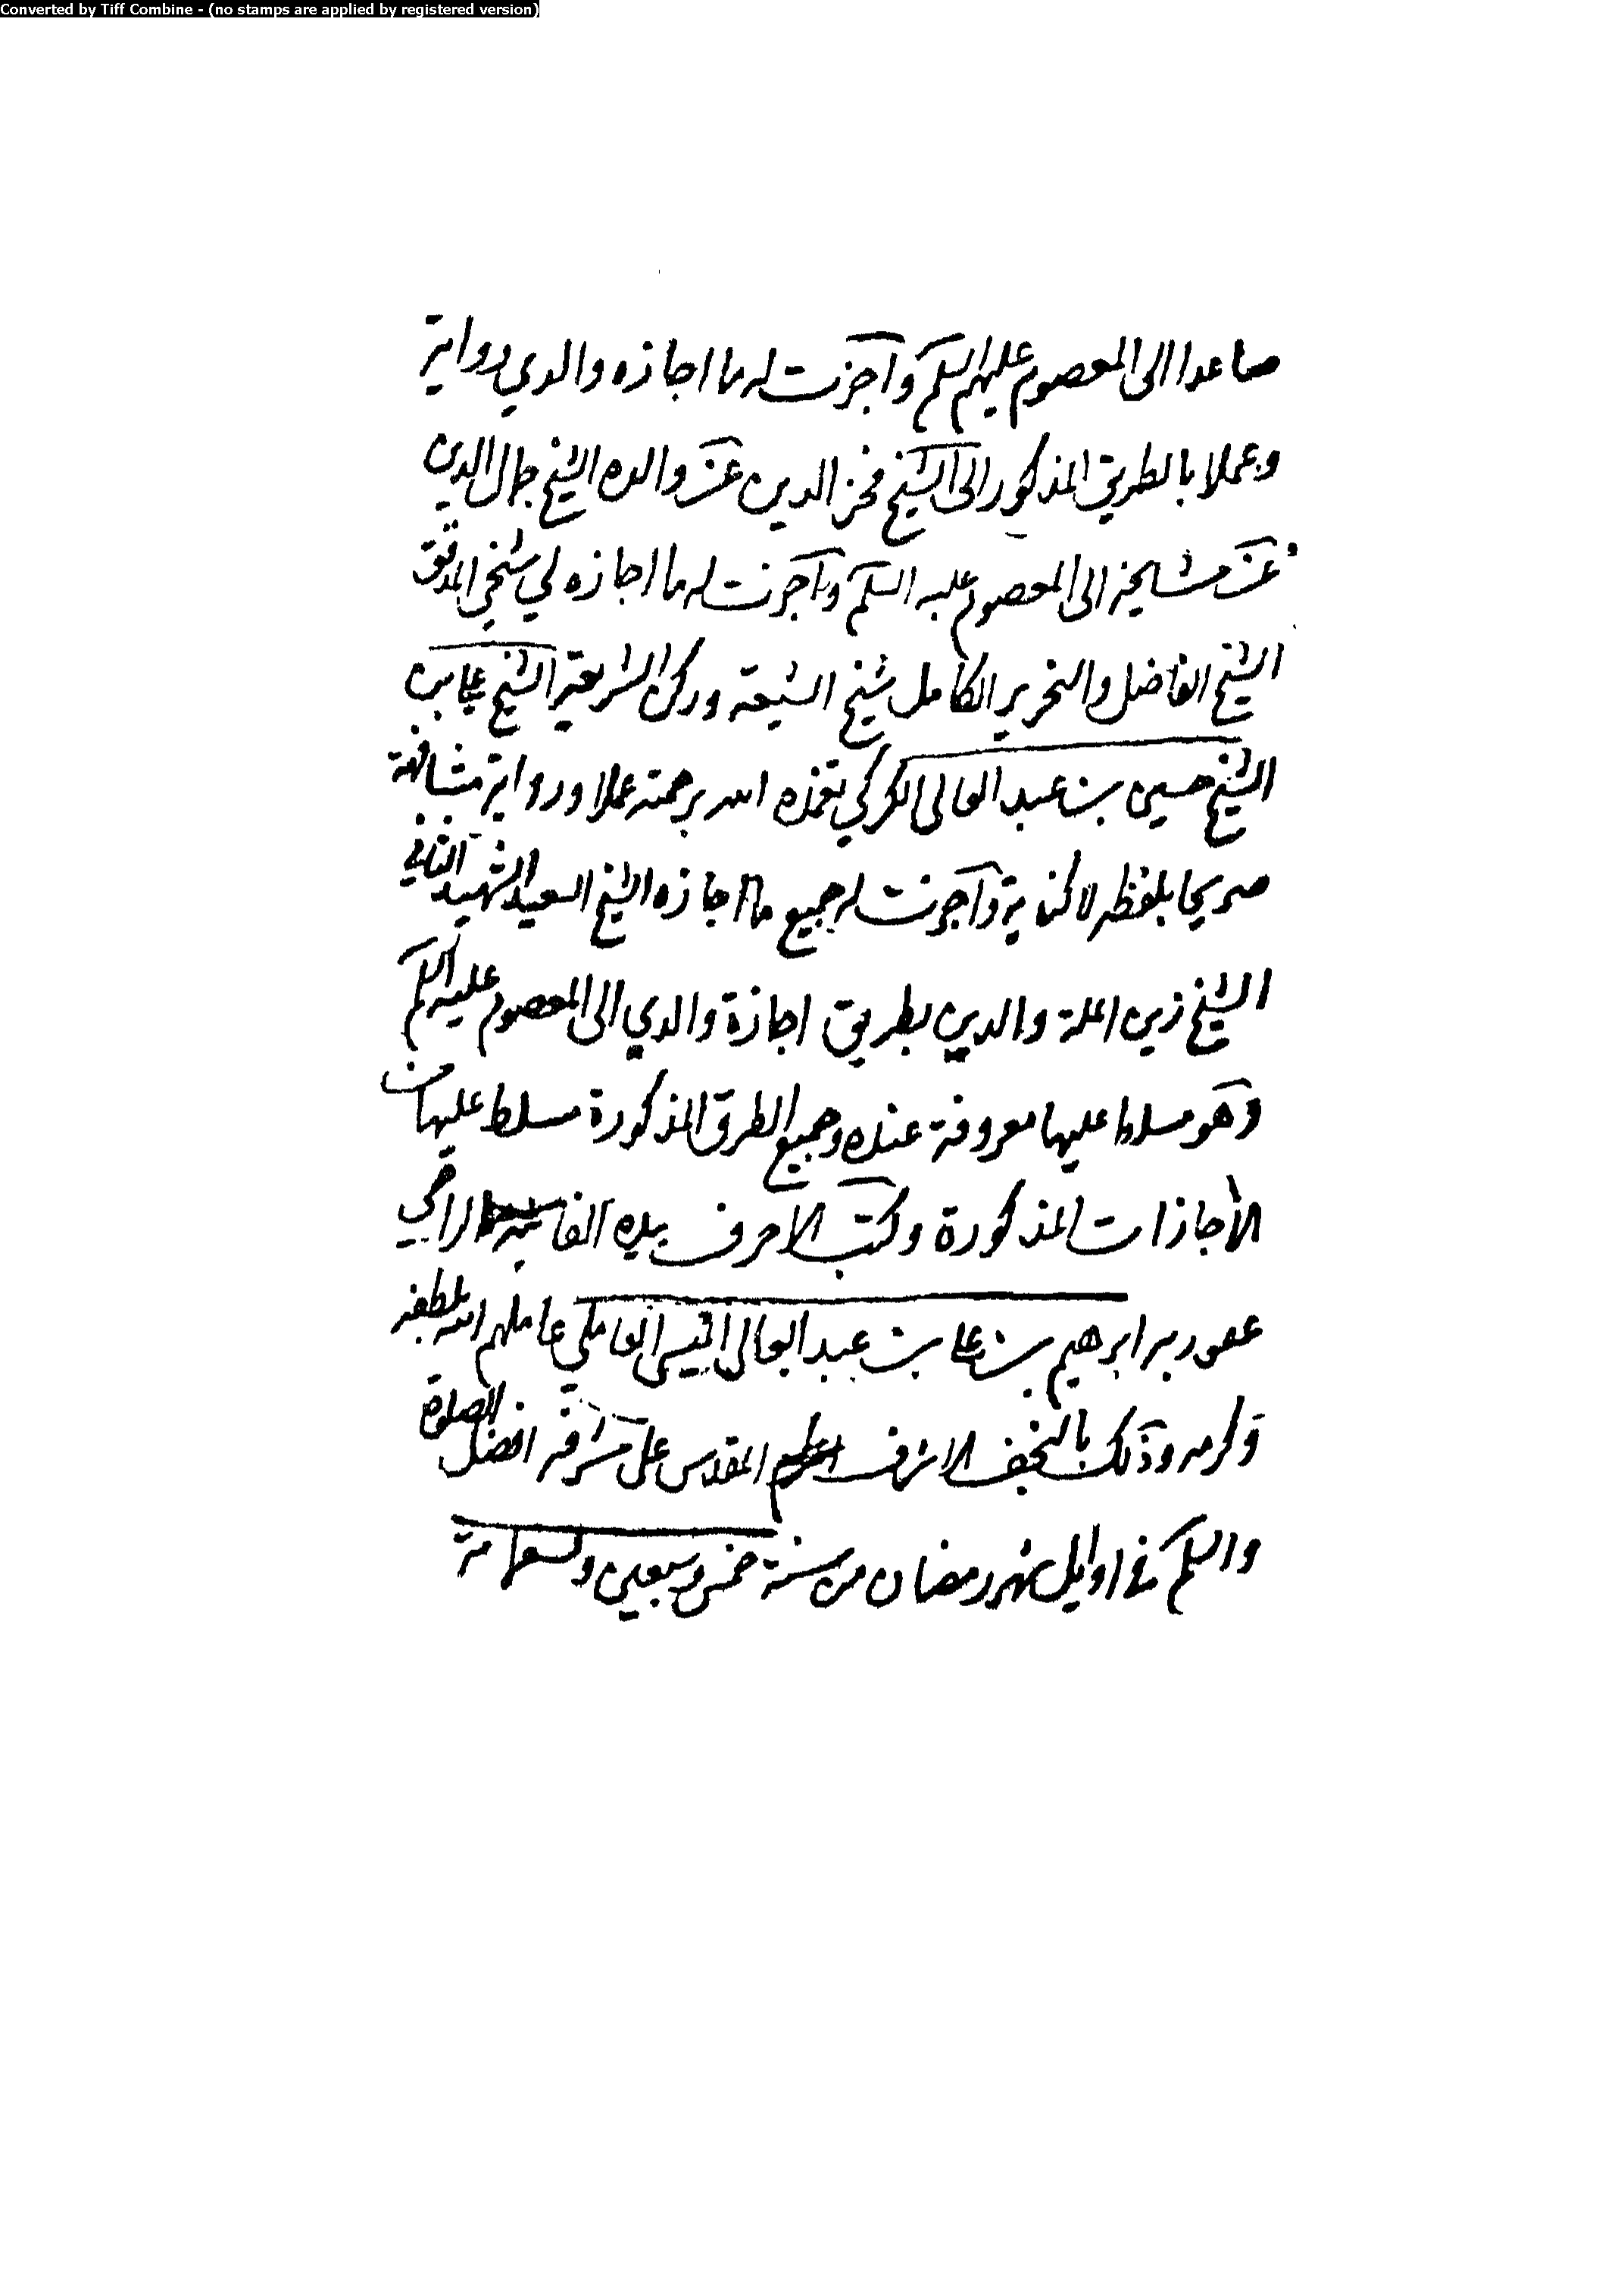 Converted by Tiff Combine - (no stamps are applied by registered version)
صاعدا الى المعصوم عليهم السلم وآجزت له ما اجازه والدي رواية
وعملا بالطريق المذكور الى الشيخ فخر الدين عن والده الشيخ جمال الدين
عن مشايخه الى المعصوم عليه السلم وآجزت له ما اجازه لي شيخي المدقق
الشيخ الفاضل والنحرير الكامل شيخ الشيعة وركن الشريعة الشيخ علي بن
الشيخ حسين بن عبد العالي الكركي تغمده الله برحمته عملا ورواية مشافهة
صريحا بلفظه لا كناية وآجزت له جميع ما اجازه الشيخ السعيد الشهيد الثاني
الشيخ زين الملة والدين بطريق اجازة والدي الى المعصوم عليه السلم
وهو مسلط عليها معروفة عنده وجميع الطرق المذكورة مسلط عليها من
الأجازات المذكورة وكتب الاحرف بيده الفانية الراجي
عفو ربه ابرهيم بن علي بن عبد العالي الميسي العاملي عاملهم الله بلطفه
وكرمه وذلك بالنجف الاشرف المقدس على مشرفه افضل الصلوة
والسلم في اوايل شهر رمضان من سنة خمس وسبعين وتسعمائة